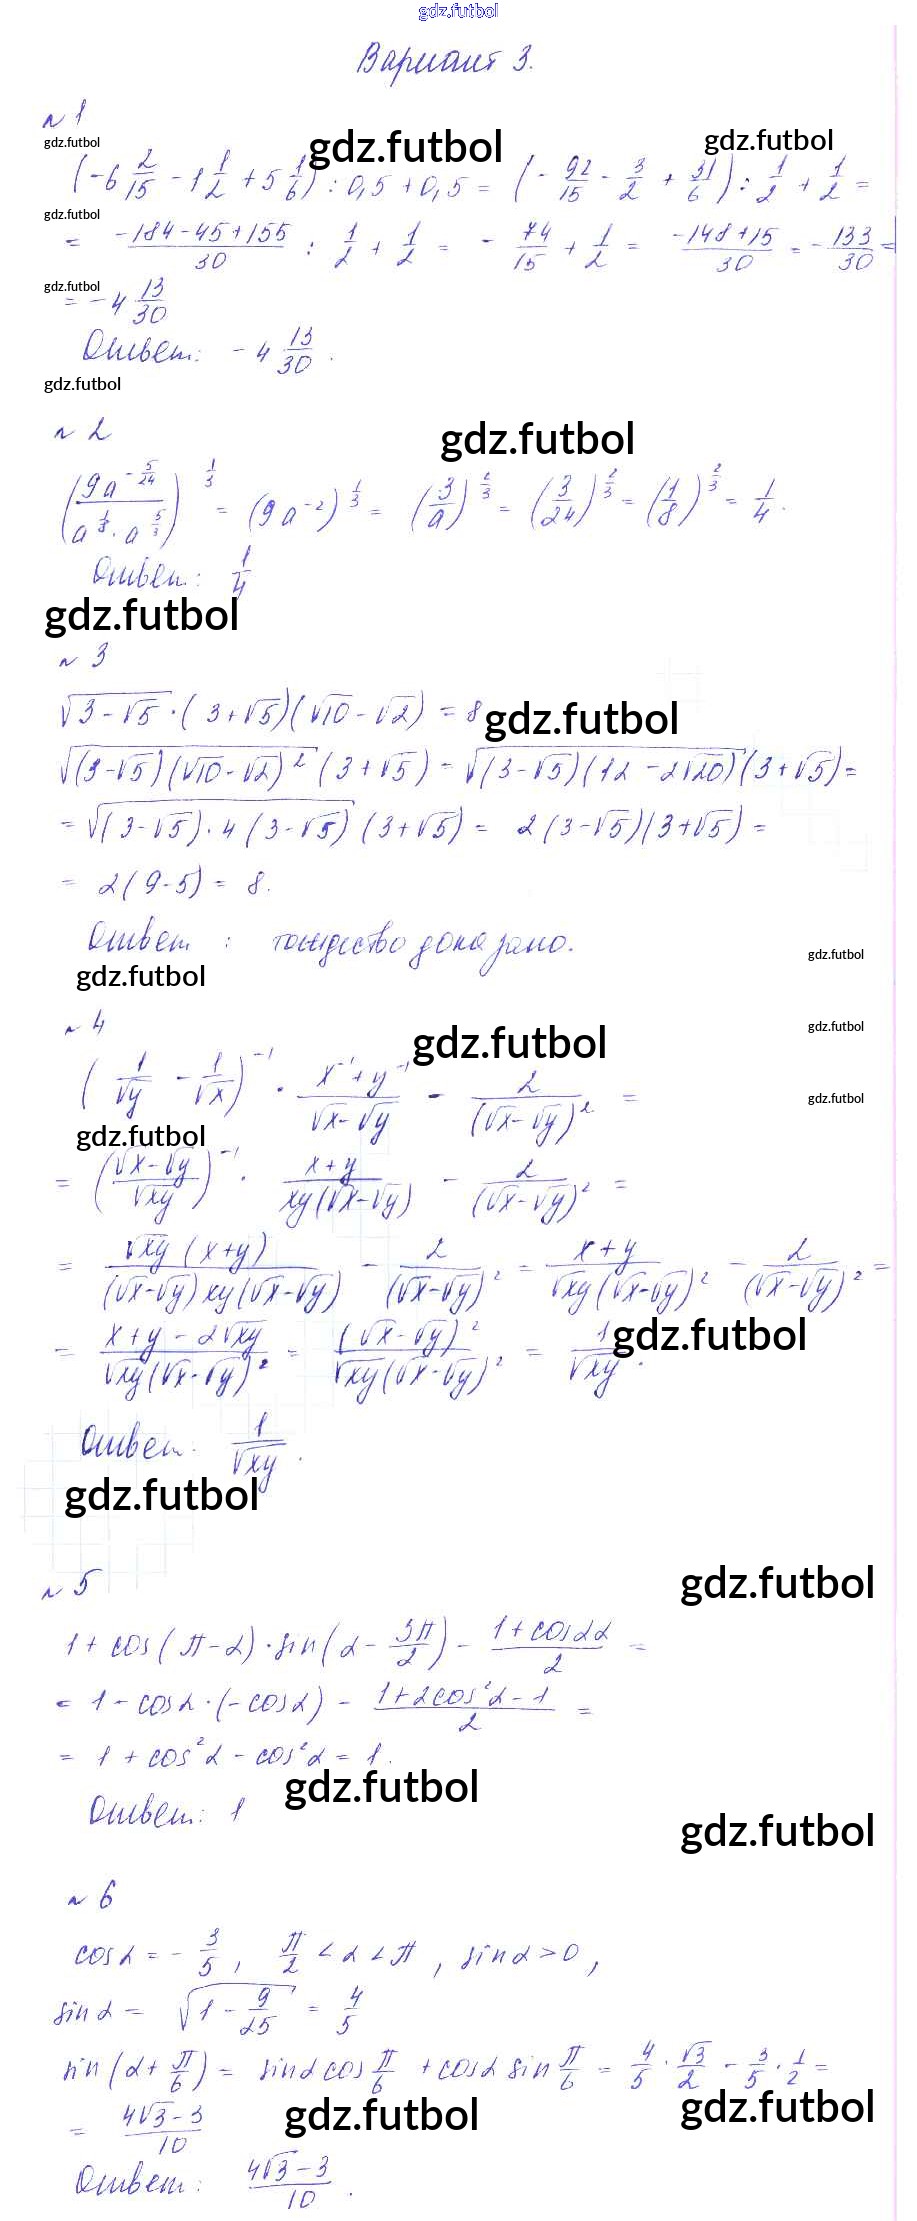 gdz.futbol
Вариант 3.
№ 1
gdz.futbol gdz.futbol gdz.futbol
(-6 2/15 - 1 1/2 + 5 1/6) : 0,5 + 0,5 = (- 92/15 - 3/2 + 31/6) : 1/2 + 1/2 =
gdz.futbol
= (-184-45+155)/30 : 1/2 + 1/2 = - 74/15 + 1/2 = (-148+15)/30 = - 133/30 =
gdz.futbol
= -4 13/30
Ответ: -4 13/30.
gdz.futbol
№ 2
gdz.futbol
((9a^(-5/24))/(a^(1/8) · a^(5/3)))^(1/3) = (9a^(-2))^(1/3) = (3/a)^(2/3) = (3/24)^(2/3) = (1/8)^(2/3) = 1/4.
Ответ: 1/4
gdz.futbol
№ 3
√(3-√5) · (3+√5)(√10-√2) = 8
gdz.futbol
√((3-√5)(√10-√2)²) (3+√5) = √((3-√5)(12-2√20)) (3+√5) =
= √((3-√5)·4(3-√5)) (3+√5) = 2(3-√5)(3+√5) =
= 2(9-5) = 8.
Ответ: тождество доказано.
gdz.futbol
gdz.futbol
№ 4
gdz.futbol
gdz.futbol
(1/√y - 1/√x)^(-1) · (x^(-1)+y^(-1))/(√x-√y) - 2/(√x-√y)² =
gdz.futbol
gdz.futbol
= ((√x-√y)/√xy)^(-1) · (x+y)/(xy(√x-√y)) - 2/(√x-√y)² =
= (√xy (x+y))/((√x-√y)xy(√x-√y)) - 2/(√x-√y)² = (x+y)/(√xy(√x-√y)²) - 2/(√x-√y)² =
gdz.futbol
= (x+y-2√xy)/(√xy(√x-√y)²) = (√x-√y)²/(√xy(√x-√y)²) = 1/√xy.
Ответ: 1/√xy.
gdz.futbol
№ 5
gdz.futbol
1 + cos(π-α) · sin(α - 3π/2) - (1+cos2α)/2 =
= 1 - cosα · (-cosα) - (1+2cos²α-1)/2 =
= 1 + cos²α - cos²α = 1.
gdz.futbol
Ответ: 1
gdz.futbol
№ 6
cosα = - 3/5, π/2 < α < π, sinα > 0,
sinα = √(1 - 9/25) = 4/5
sin(α + π/6) = sinα cos π/6 + cosα sin π/6 = 4/5 · √3/2 - 3/5 · 1/2 =
gdz.futbol gdz.futbol
= (4√3-3)/10
Ответ: (4√3-3)/10.